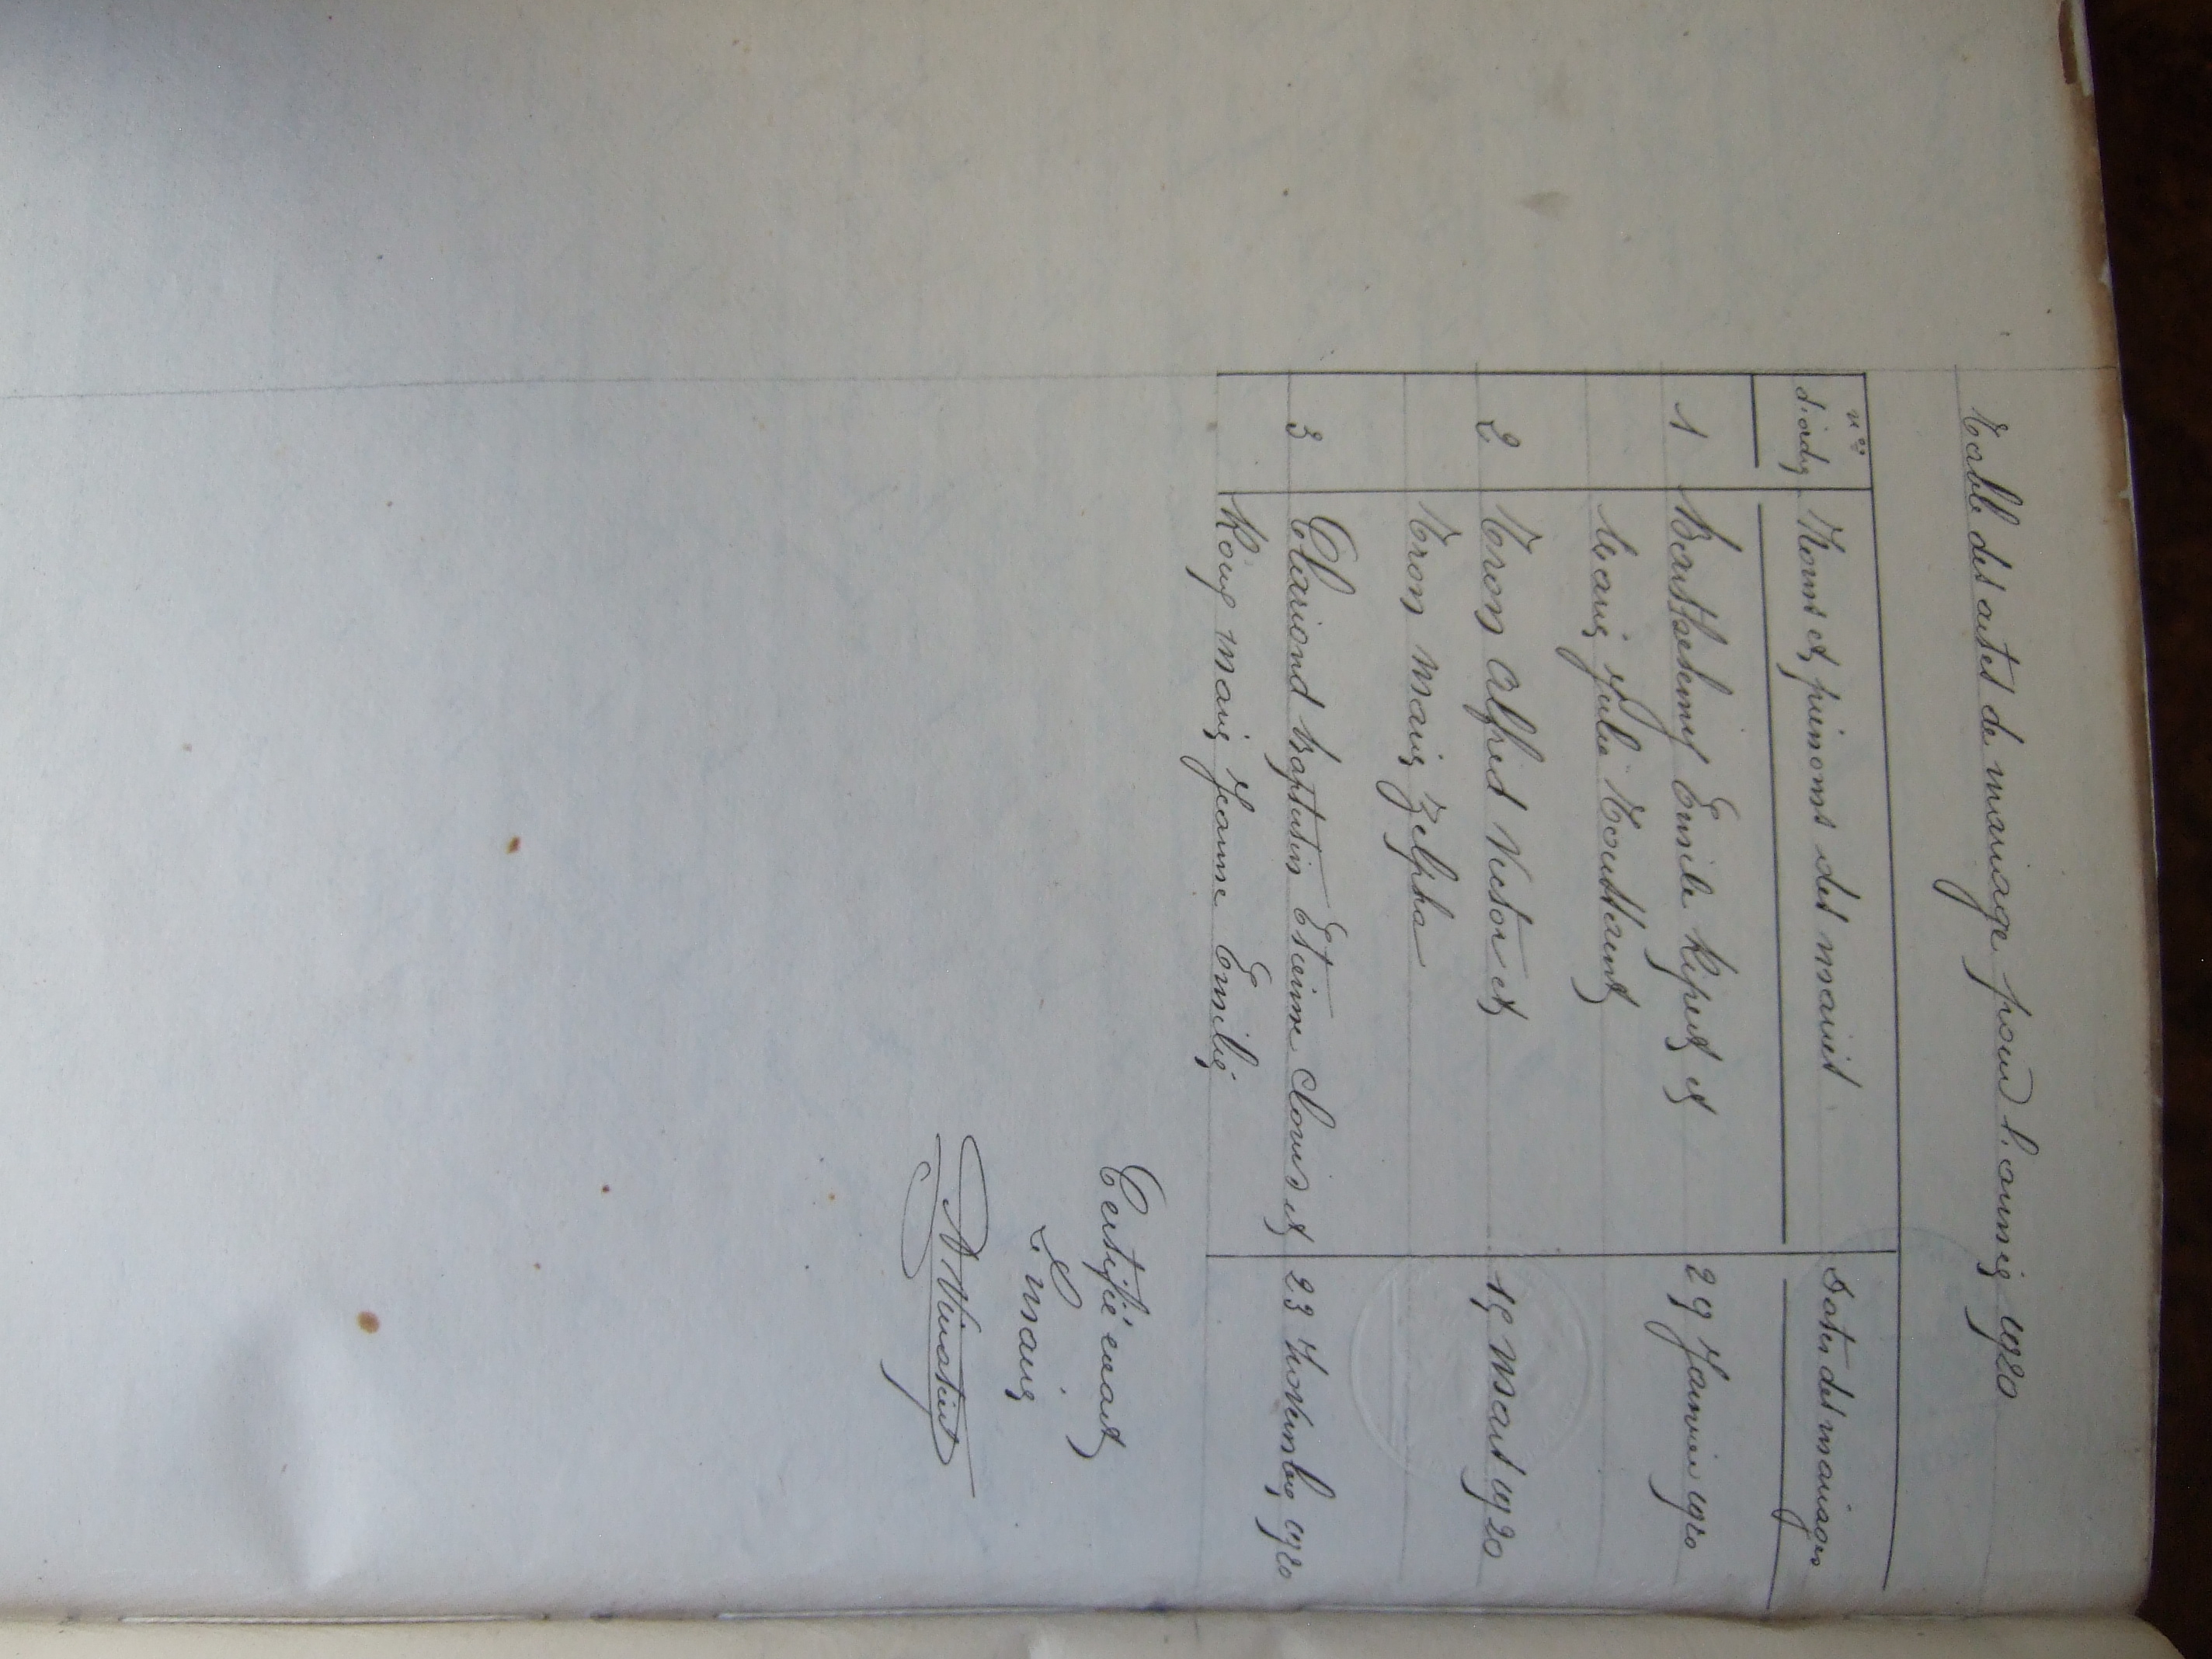 Table des actes de mariage pour l'année 1920
nos d'ordre
Noms et prénoms des mariés
Dates des mariages
1 Barthélemy Emile Ripert et 29 Janvier 1920
Marie Julie Toustaint
2 Tron Alfred Victor et 15 Mars 1920
Tron Marie Zelpha
3 Clariond Baptistin Etienne Clovis et 23 Novembre 1920
Roux Marie Jeanne Emilie
Certifié exact
Le Maire